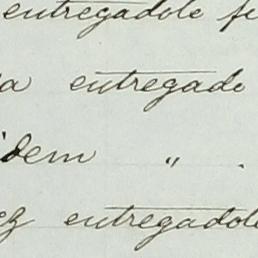 entregadole fe
a entregado
idem " .
ez entregadole